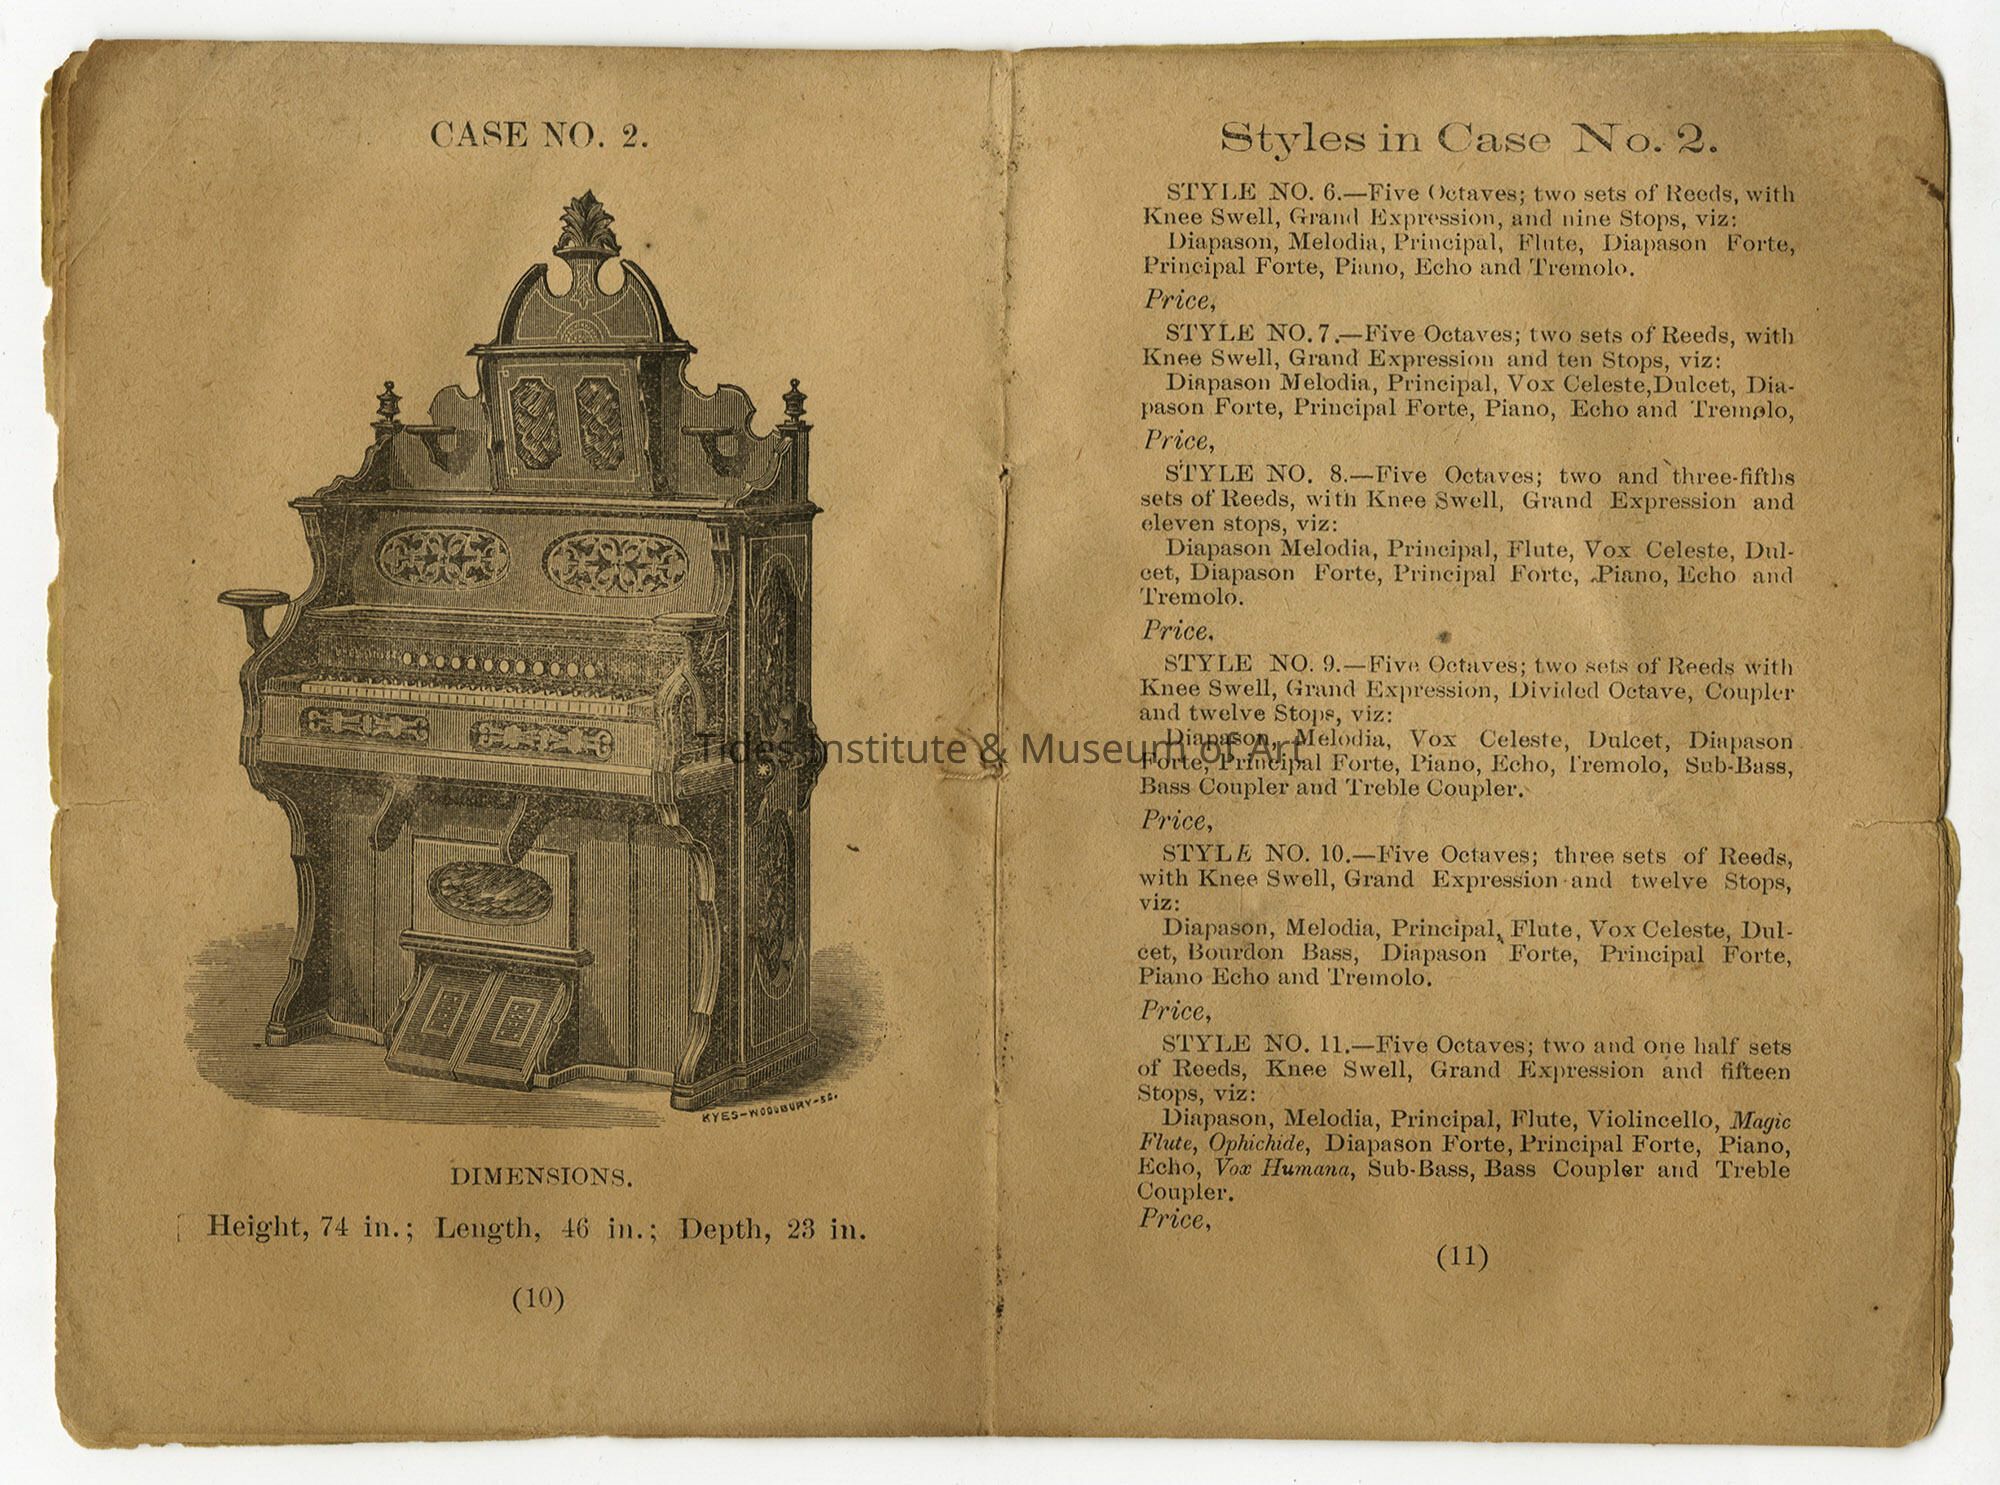 CASE NO. 2.
KYES-WOODBURY-SC.
DIMENSIONS.
Height, 74 in.; Length, 46 in.; Depth, 23 in.
(10)
Styles in Case No. 2.
STYLE NO. 6.—Five Octaves; two sets of Reeds, with
Knee Swell, Grand Expression, and nine Stops, viz:
Diapason, Melodia, Principal, Flute, Diapason Forte,
Principal Forte, Piano, Echo and Tremolo.
Price,
STYLE NO. 7.—Five Octaves; two sets of Reeds, with
Knee Swell, Grand Expression and ten Stops, viz:
Diapason Melodia, Principal, Vox Celeste, Dulcet, Dia-
pason Forte, Principal Forte, Piano, Echo and Tremolo,
Price,
STYLE NO. 8.—Five Octaves; two and three-fifths
sets of Reeds, with Knee Swell, Grand Expression and
eleven stops, viz:
Diapason Melodia, Principal, Flute, Vox Celeste, Dul-
cet, Diapason Forte, Principal Forte, Piano, Echo and
Tremolo.
Price.
STYLE NO. 9.—Five Octaves; two sets of Reeds with
Knee Swell, Grand Expression, Divided Octave, Coupler
and twelve Stops, viz:
Diapason, Melodia, Vox Celeste, Dulcet, Diapason
Forte, Principal Forte, Piano, Echo, Tremolo, Sub-Bass,
Bass Coupler and Treble Coupler.
Price,
STYLE NO. 10.—Five Octaves; three sets of Reeds,
with Knee Swell, Grand Expression and twelve Stops,
viz:
Diapason, Melodia, Principal, Flute, Vox Celeste, Dul-
cet, Bourdon Bass, Diapason Forte, Principal Forte,
Piano Echo and Tremolo.
Price,
STYLE NO. 11.—Five Octaves; two and one half sets
of Reeds, Knee Swell, Grand Expression and fifteen
Stops, viz:
Diapason, Melodia, Principal, Flute, Violincello, Magic
Flute, Ophichide, Diapason Forte, Principal Forte, Piano,
Echo, Vox Humana, Sub-Bass, Bass Coupler and Treble
Coupler.
Price,
(11)
Tides Institute & Museum of Art